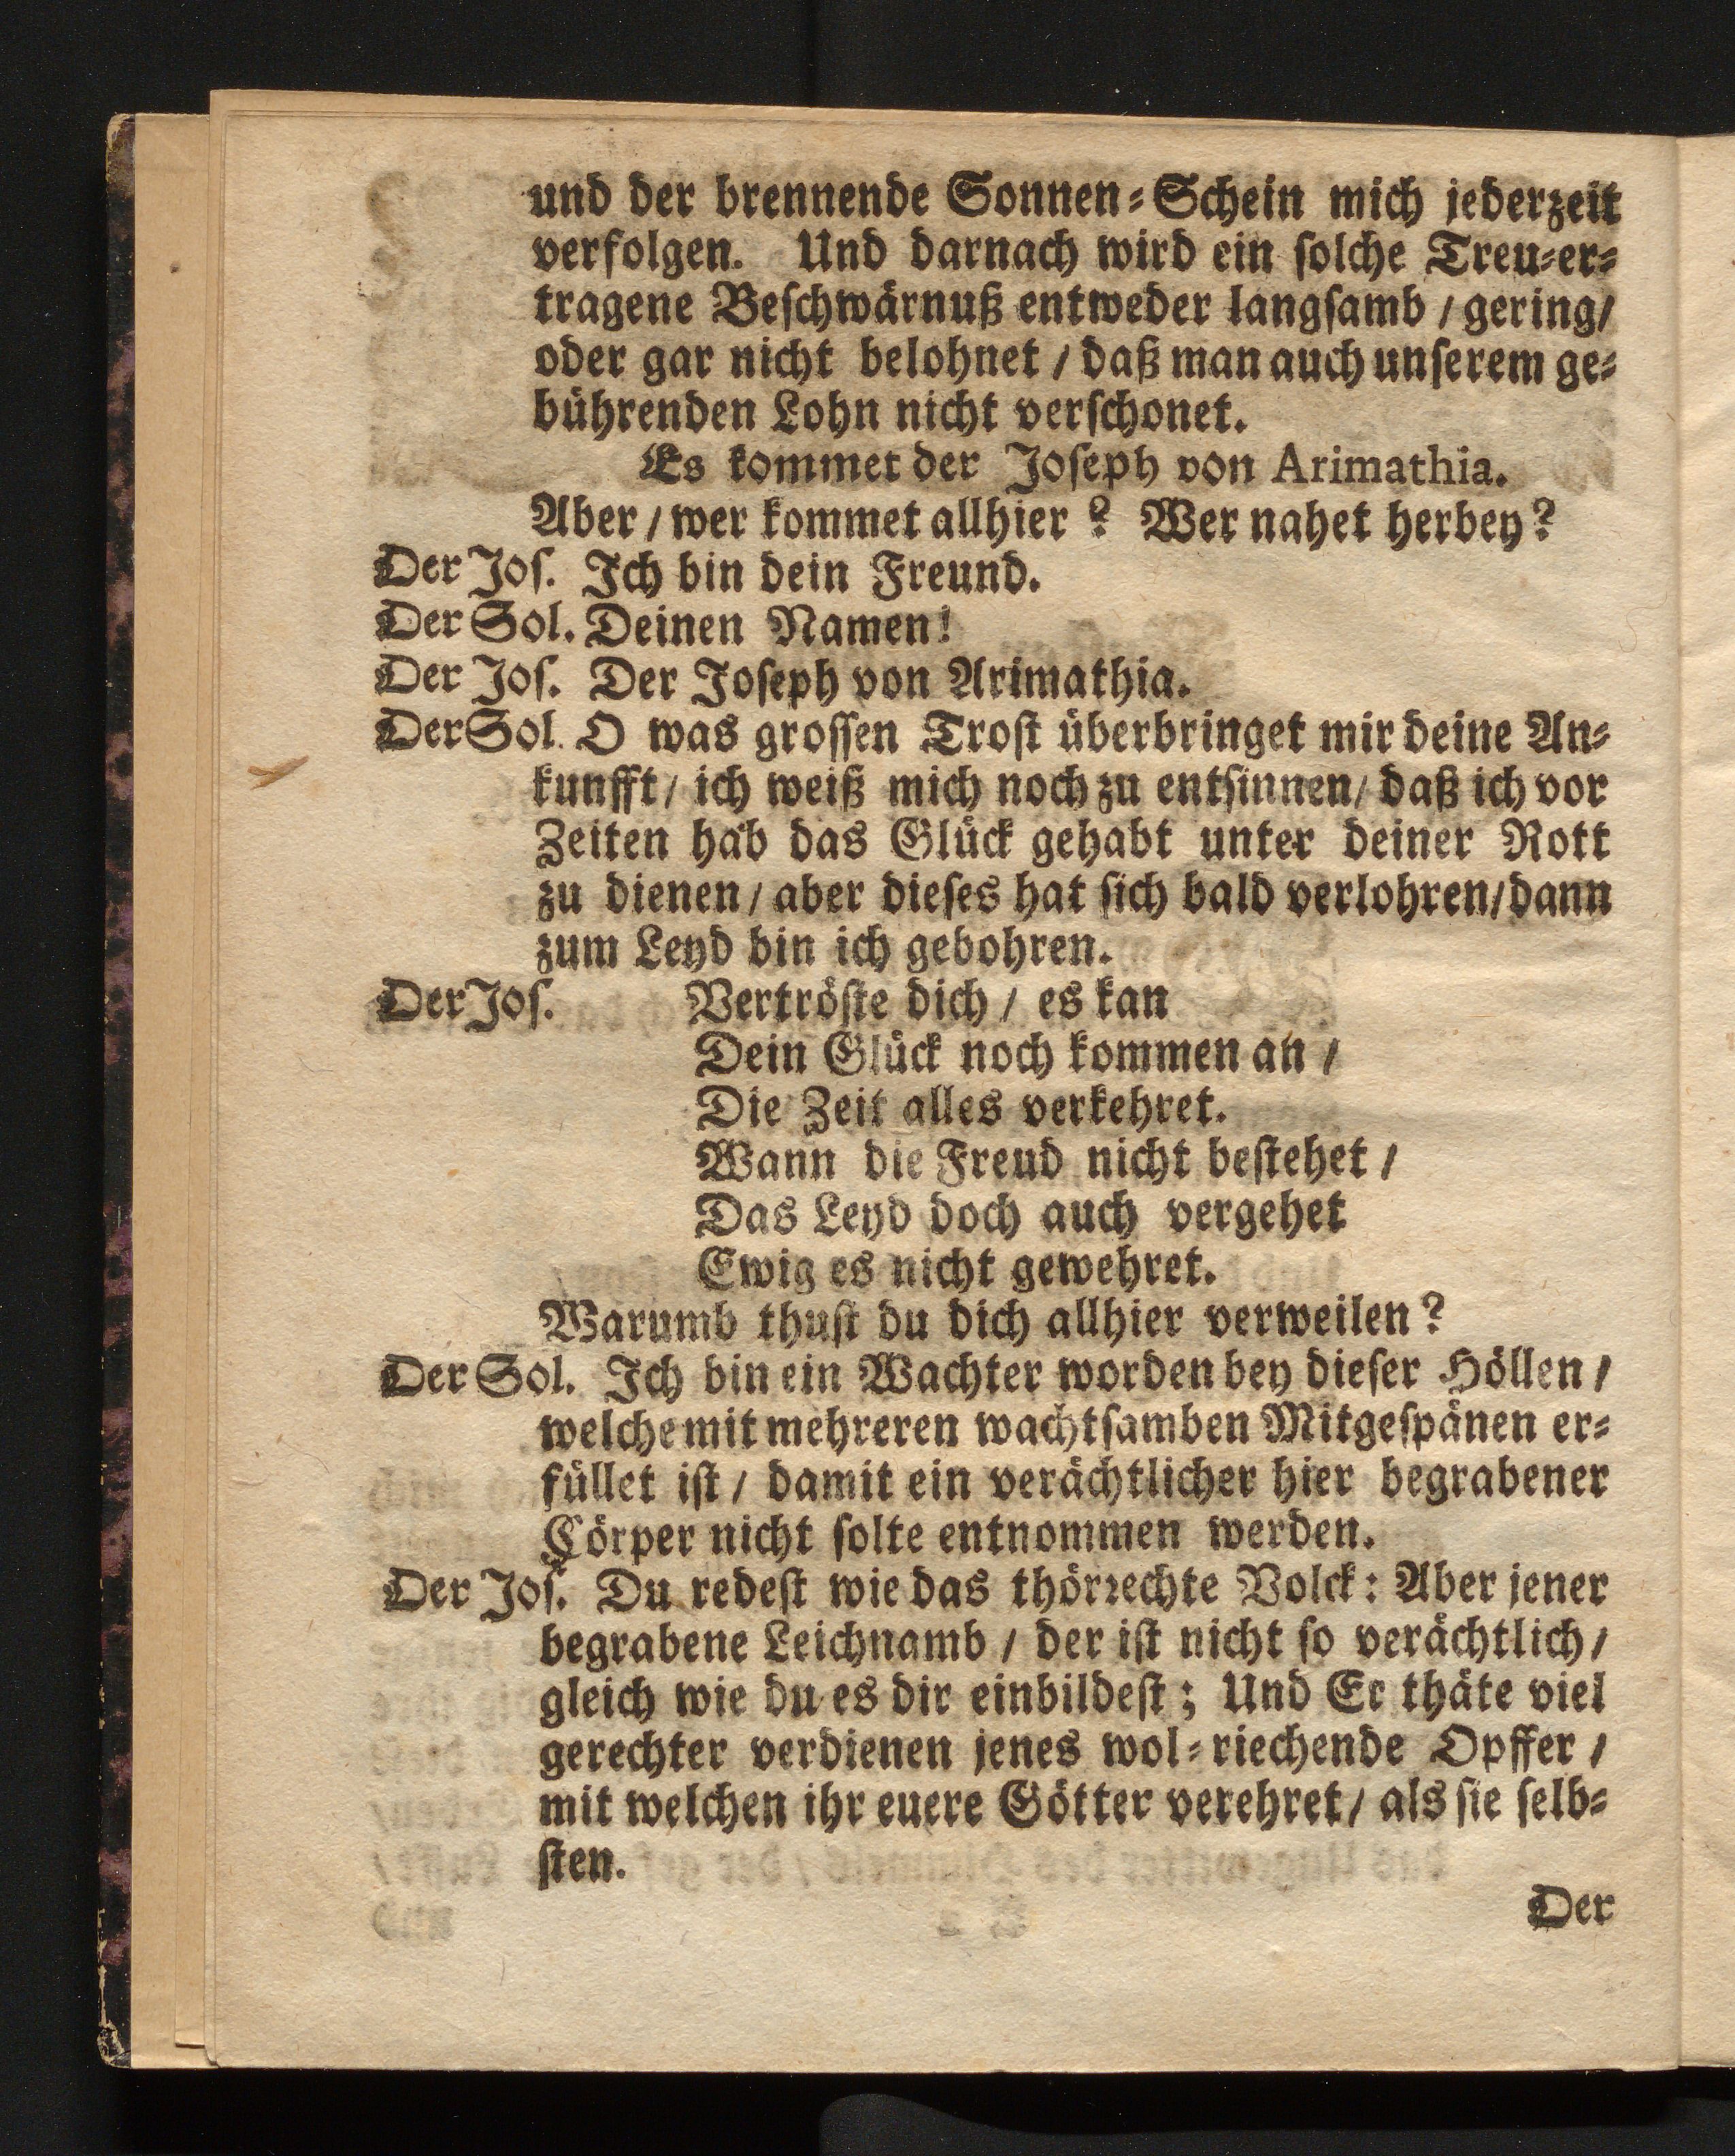 und der brennende Sonnen-Schein mich jederzeit
verfolgen. Und darnach wird ein solche Treu-er-
tragene Beschwärnuß entweder langsamb / gering /
oder gar nicht belohnet / daß man auch unserem ge-
bührenden Lohn nicht verschonet.
Es kommet der Joseph von Arimathia.
Aber / wer kommet allhier? Wer nahet herbey?
Der Jos. Ich bin dein Freund.
Der Sol. Deinen Namen!
Der Jos. Der Joseph von Arimathia.
Der Sol. O was grossen Trost überbringet mir deine An-
kunfft / ich weiß mich noch zu entsinnen / daß ich vor
Zeiten hab das Glück gehabt unter deiner Rott
zu dienen / aber dieses hat sich bald verlohren / dann
zum Leyd bin ich gebohren.
Der Jos. Vertröste dich / es kan
Dein Glück noch kommen an /
Die Zeit alles verkehret.
Wann die Freud nicht bestehet /
Das Leyd doch auch vergehet
Ewig es nicht gewehret.
Warumb thust du dich allhier verweilen?
Der Sol. Ich bin ein Wachter worden bey dieser Höllen /
welche mit mehreren wachtsamben Mitgespänen er-
füllet ist / damit ein verächtlicher hier begrabener
Cörper nicht solte entnommen werden.
Der Jos. Du redest wie das thörrechte Volck: Aber jener
begrabene Leichnamb / der ist nicht so verächtlich /
gleich wie du es dir einbildest; Und Er thäte viel
gerechter verdienen jenes wol-riechende Opffer /
mit welchen ihr euere Götter verehret / als sie selb-
sten.
Der